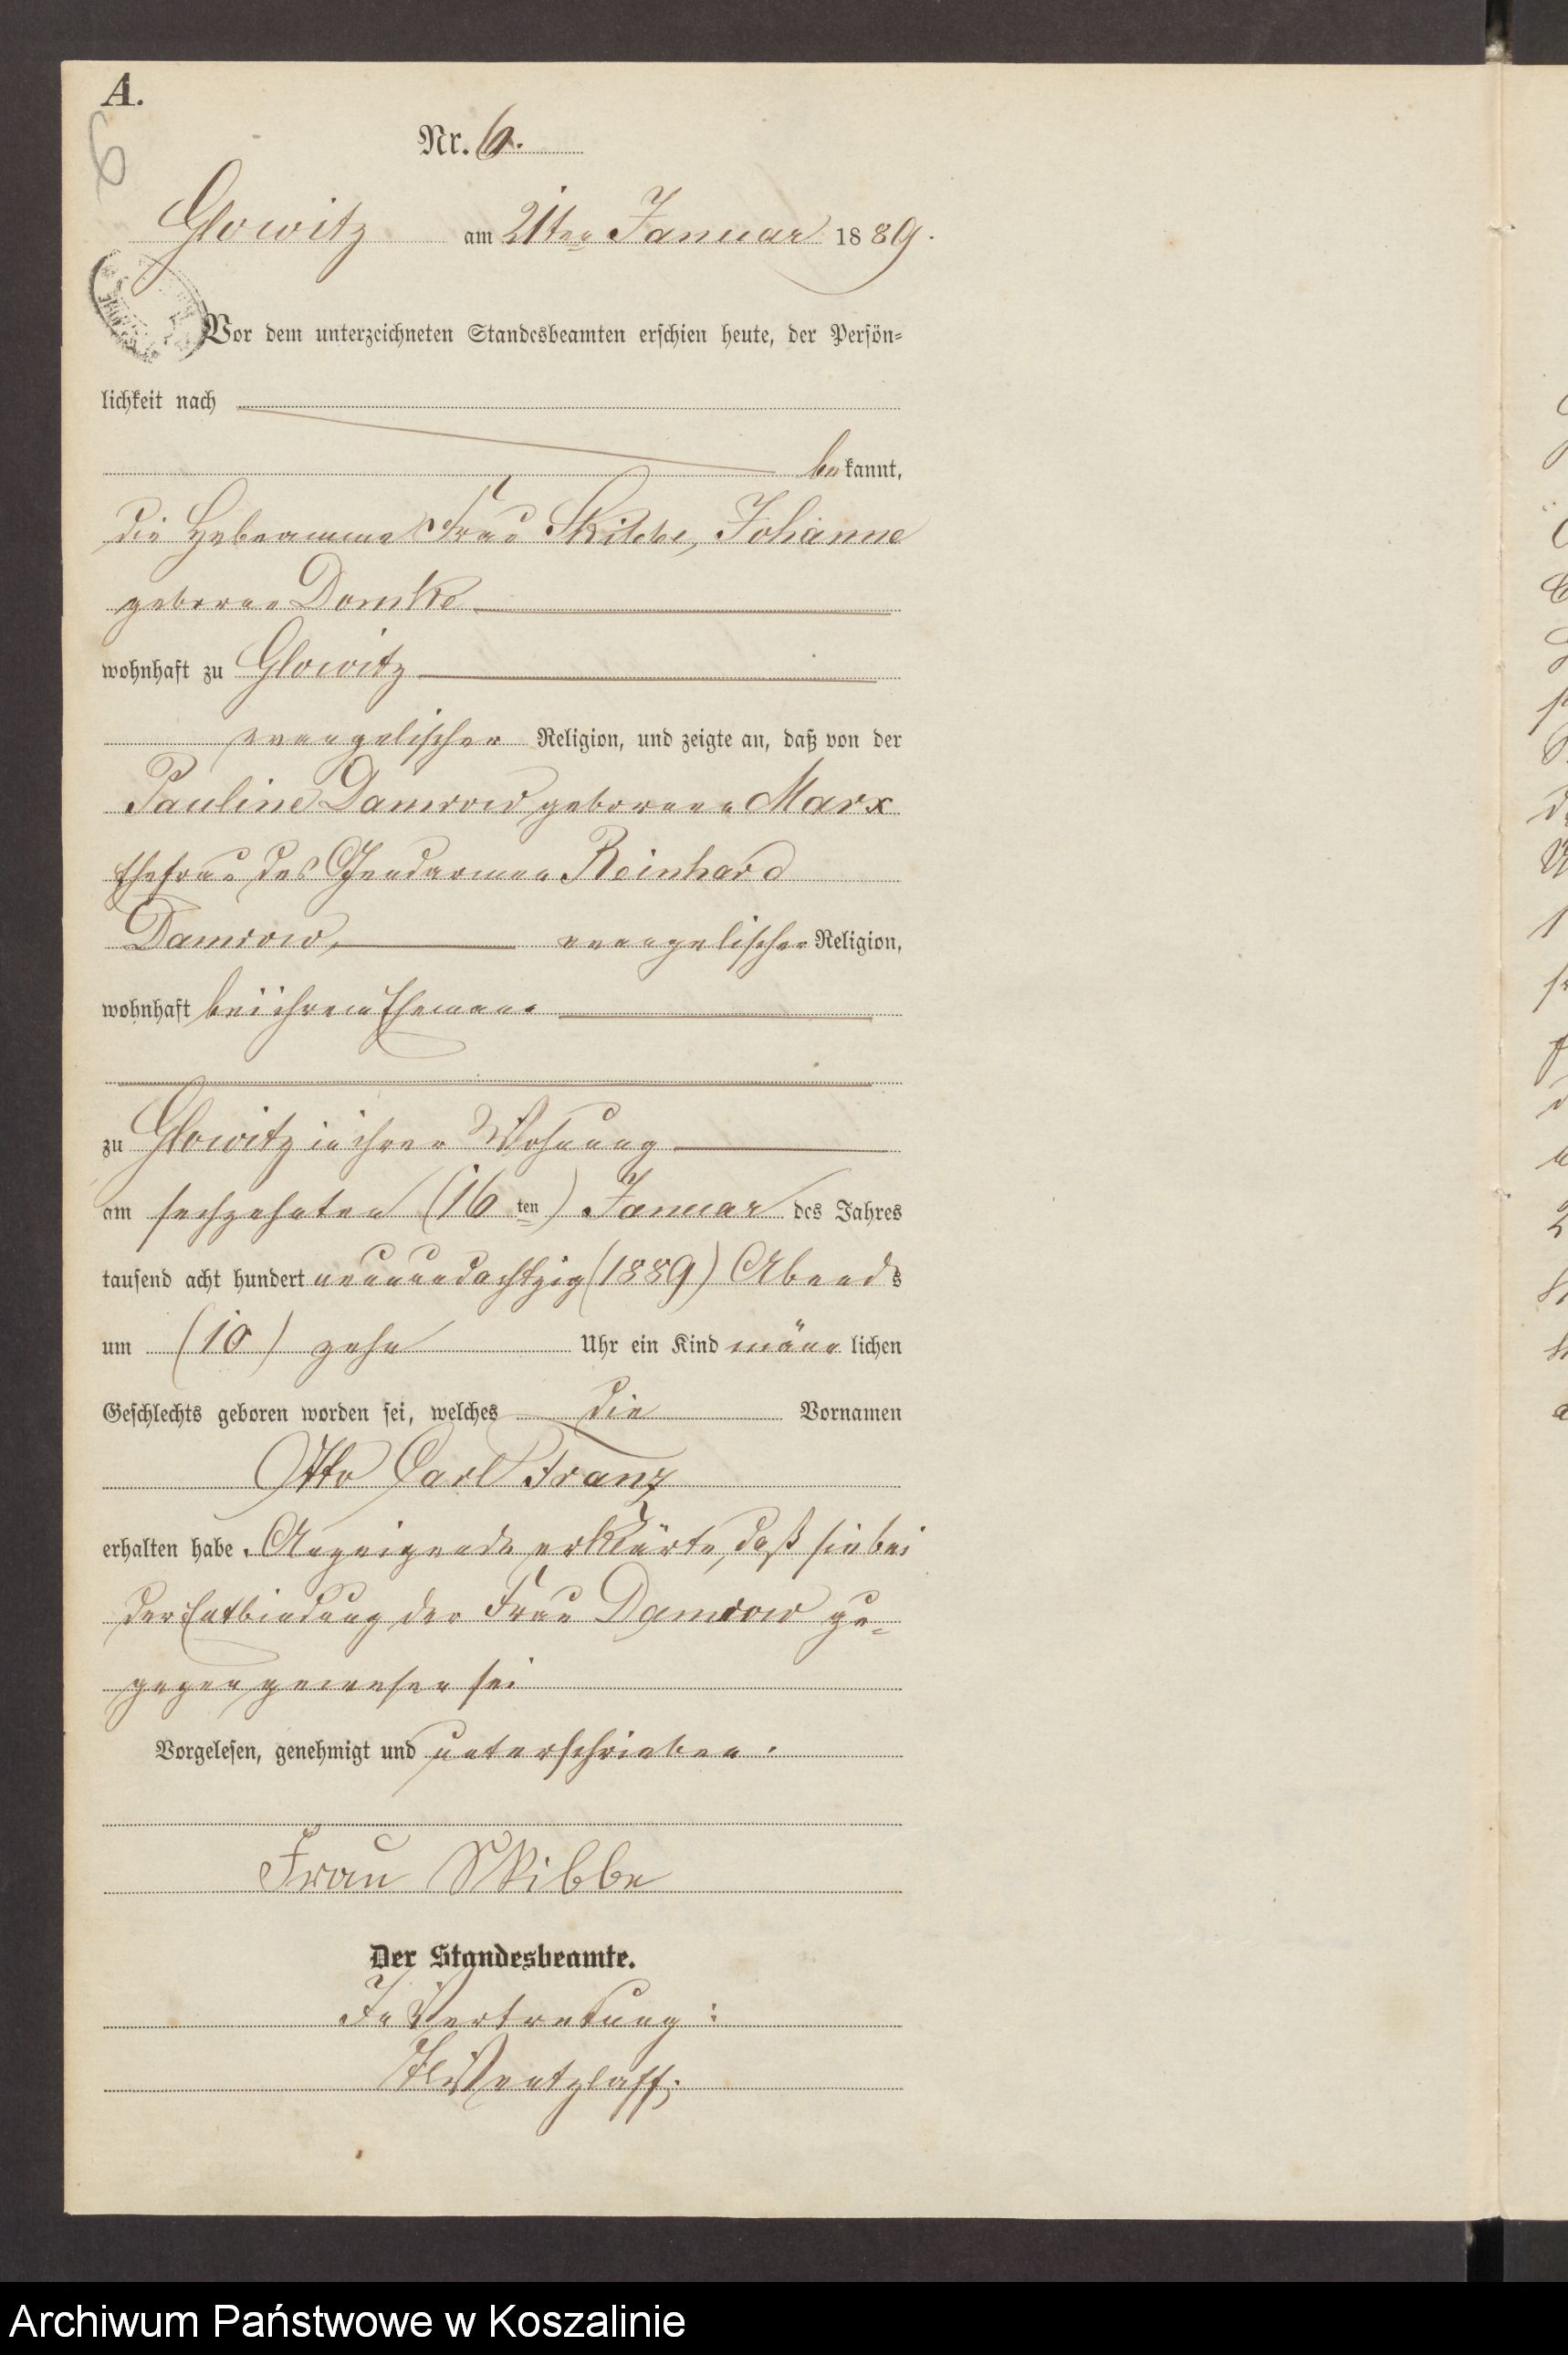 A.
6
Nr. 6.
Glowitz am 21ten Januar 1889.
Vor dem unterzeichneten Standesbeamten erschien heute, der Persön-
lichkeit nach
bekannt,
die Hebeamme Frau Skibbe, Johanne
geborne Domke
wohnhaft zu Glowitz
evangelischer Religion, und zeigte an, daß von der
Pauline Damrow geborene Marx
Ehefrau des Gendarmen Reinhard
Damrow, evangelischer Religion,
wohnhaft bei ihrem Ehemann
zu Glowitz in ihrer Wohnung
am sechzehnten (16ten) Januar des Jahres
tausend acht hundert neunundachtzig (1889) Abends
um (10) zehn Uhr ein Kind männlichen
Geschlechts geboren worden sei, welches die Vornamen
Otto Carl Franz
erhalten habe. Anzeigende erklärte, daß sie bei
der Entbindung der Frau Damrow zu-
gegen gewesen sei
Vorgelesen, genehmigt und unterschrieben.
Frau Skibbe
Der Standesbeamte.
In Vertretung:
Wentzlaff.
Archiwum Państwowe w Koszalinie